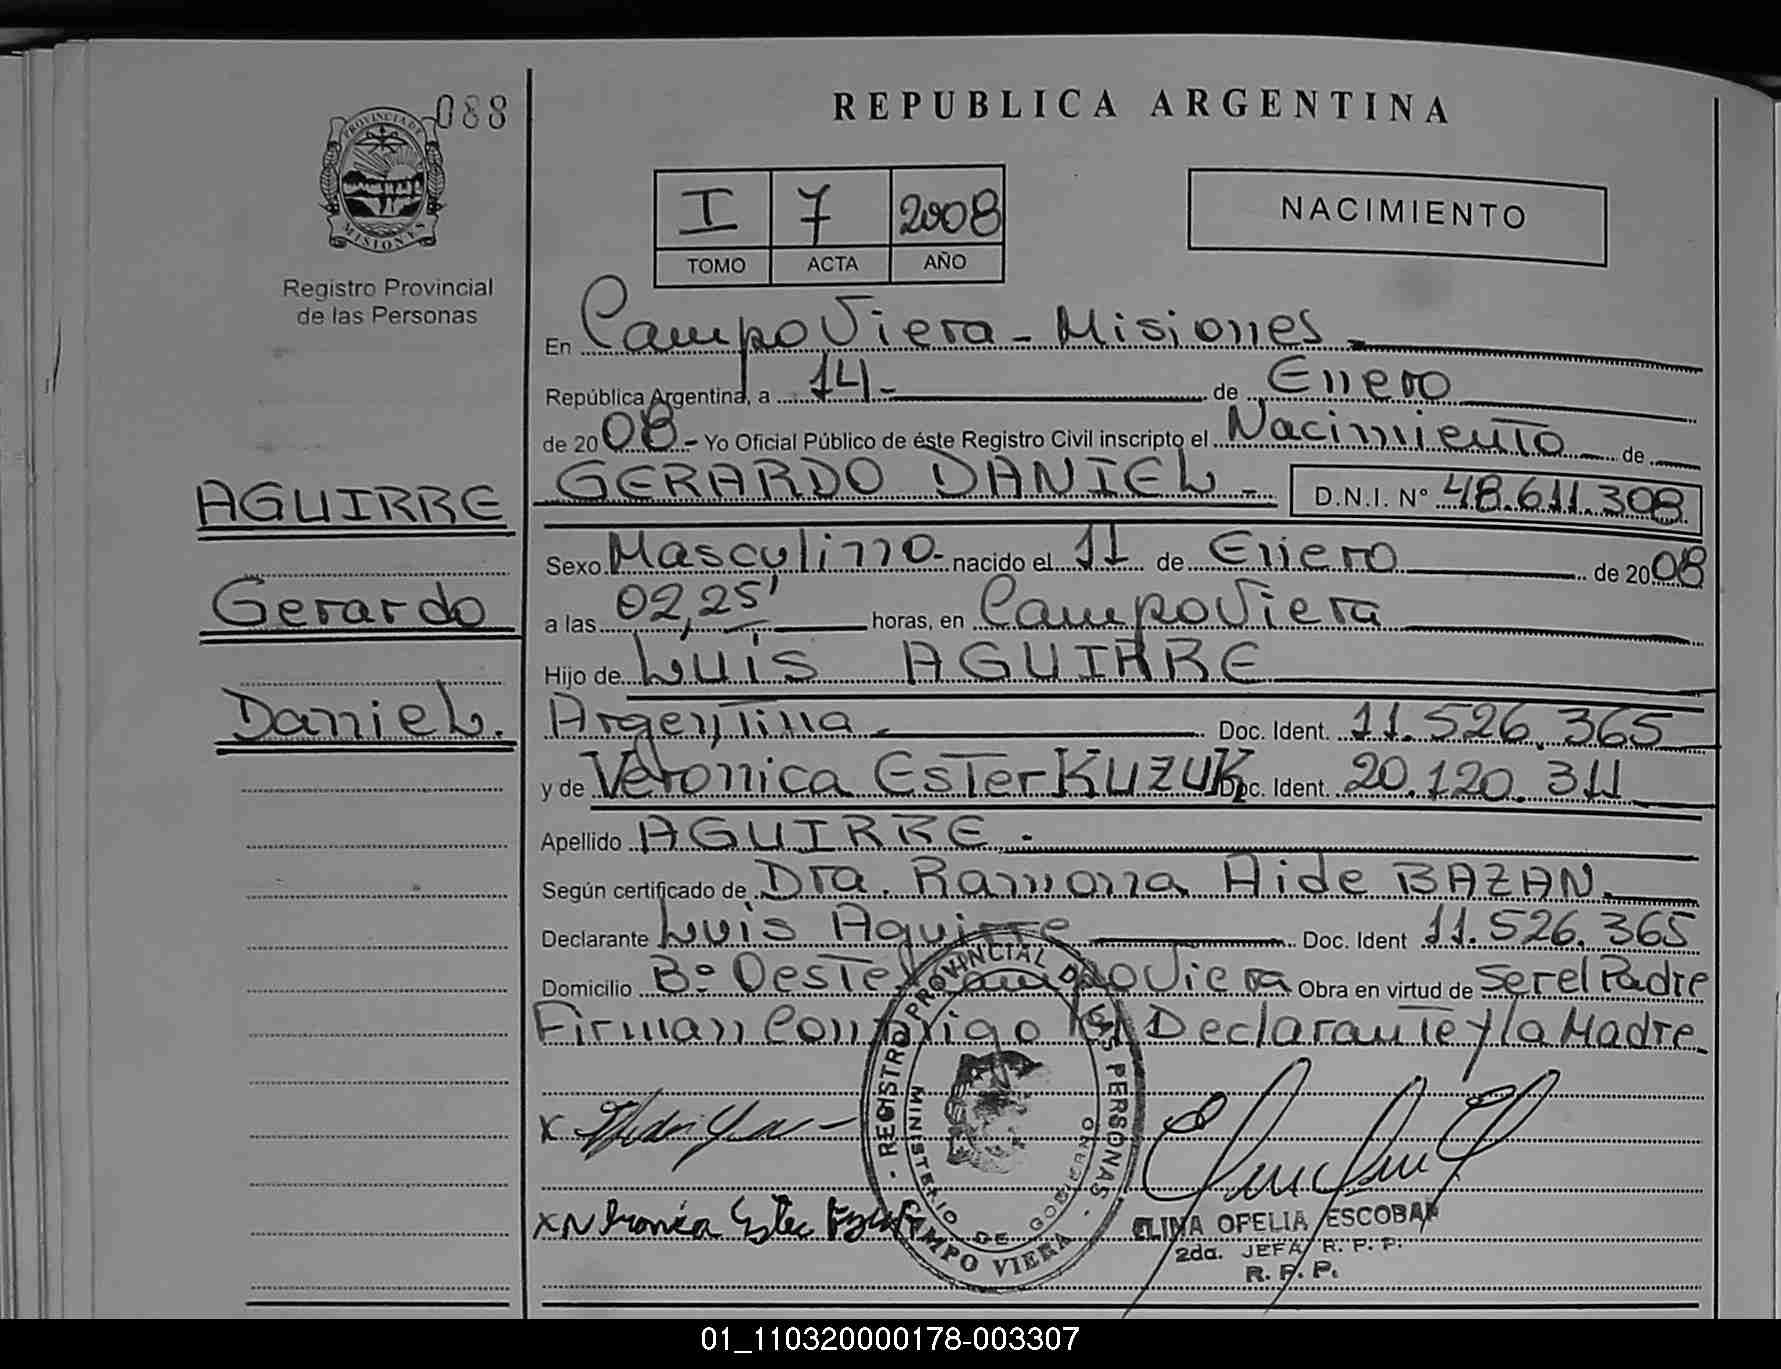 088
PROVINCIA DE
MISIONES
Registro Provincial
de las Personas
AGUIRRE
Gerardo
Daniel.
REPUBLICA ARGENTINA
I 7 2008
TOMO ACTA AÑO
NACIMIENTO
En Campo Viera - Misiones
República Argentina, a 14- de Enero
de 2008- Yo Oficial Público de éste Registro Civil inscripto el Nacimiento de
GERARDO DANIEL - D.N.I. N° 48.611.308
Sexo Masculino- nacido el 11 de Enero de 2008
a las 02,25' horas, en Campo Viera
Hijo de Luis AGUIRRE
Argentina Doc. Ident. 11.526.365
y de Veronica Ester KUZUK Doc. Ident. 20.120.311
Apellido AGUIRRE.
Según certificado de Dra. Ramona Aide BAZAN.
Declarante Luis Aguirre Doc. Ident 11.526.365
Domicilio Bº Oeste Campo Viera Obra en virtud de Ser el Padre
Firman Conmigo el Declarante y la Madre
- REGISTRO PROVINCIAL DE LAS PERSONAS -
MINISTERIO DE GOBIERNO
CAMPO VIERA
X
X Ester
ELINA OFELIA ESCOBAR
2da. JEFA R. P. P.
R. P. P.
01_110320000178-003307